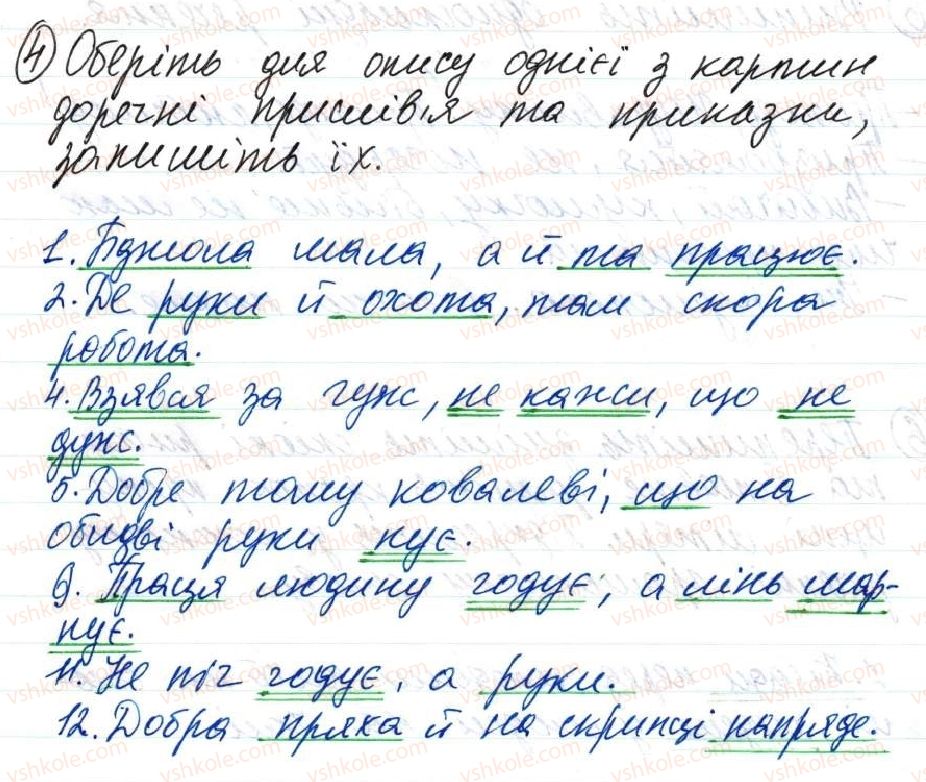 4 Оберіть для опису однієї з картин
доречні прислів'я та приказки,
запишіть їх.
1. Бджола мала, а й та працює.
2. Де руки й охота, там скора
робота.
4. Взявся за гуж, не кажи, що не
дуж.
5. Добре тому ковалеві, що на
обидві руки кує.
9. Праця людину годує, а лінь мар-
нує.
11. Не піч годує, а руки.
12. Добра пряха й на скрипці напряде.